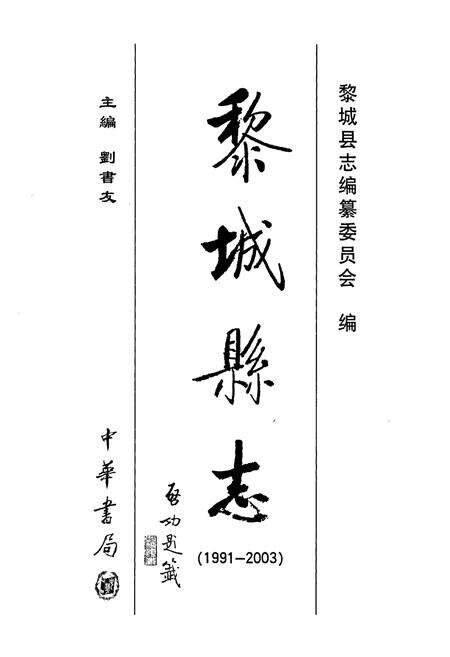 黎城县志编纂委员会 编
黎城縣志
(1991—2003)
啓功題籤
主编 劉書友
中華書局